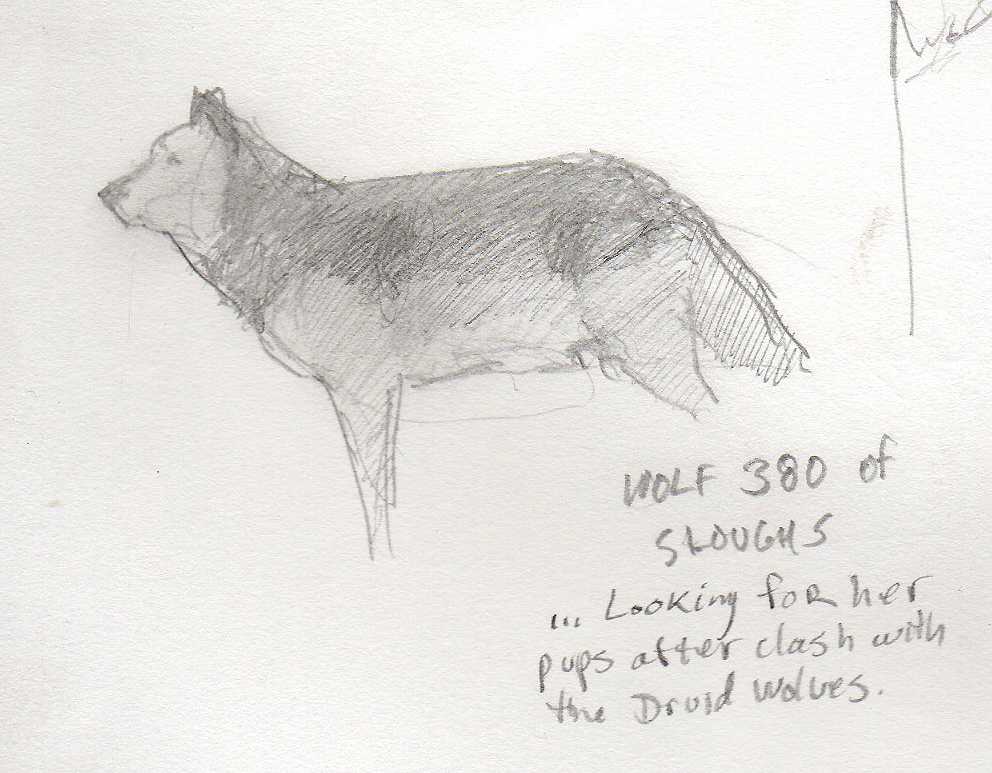 WOLF 380 of
SLOUGHS
... Looking for her
pups after clash with
the Druid wolves.